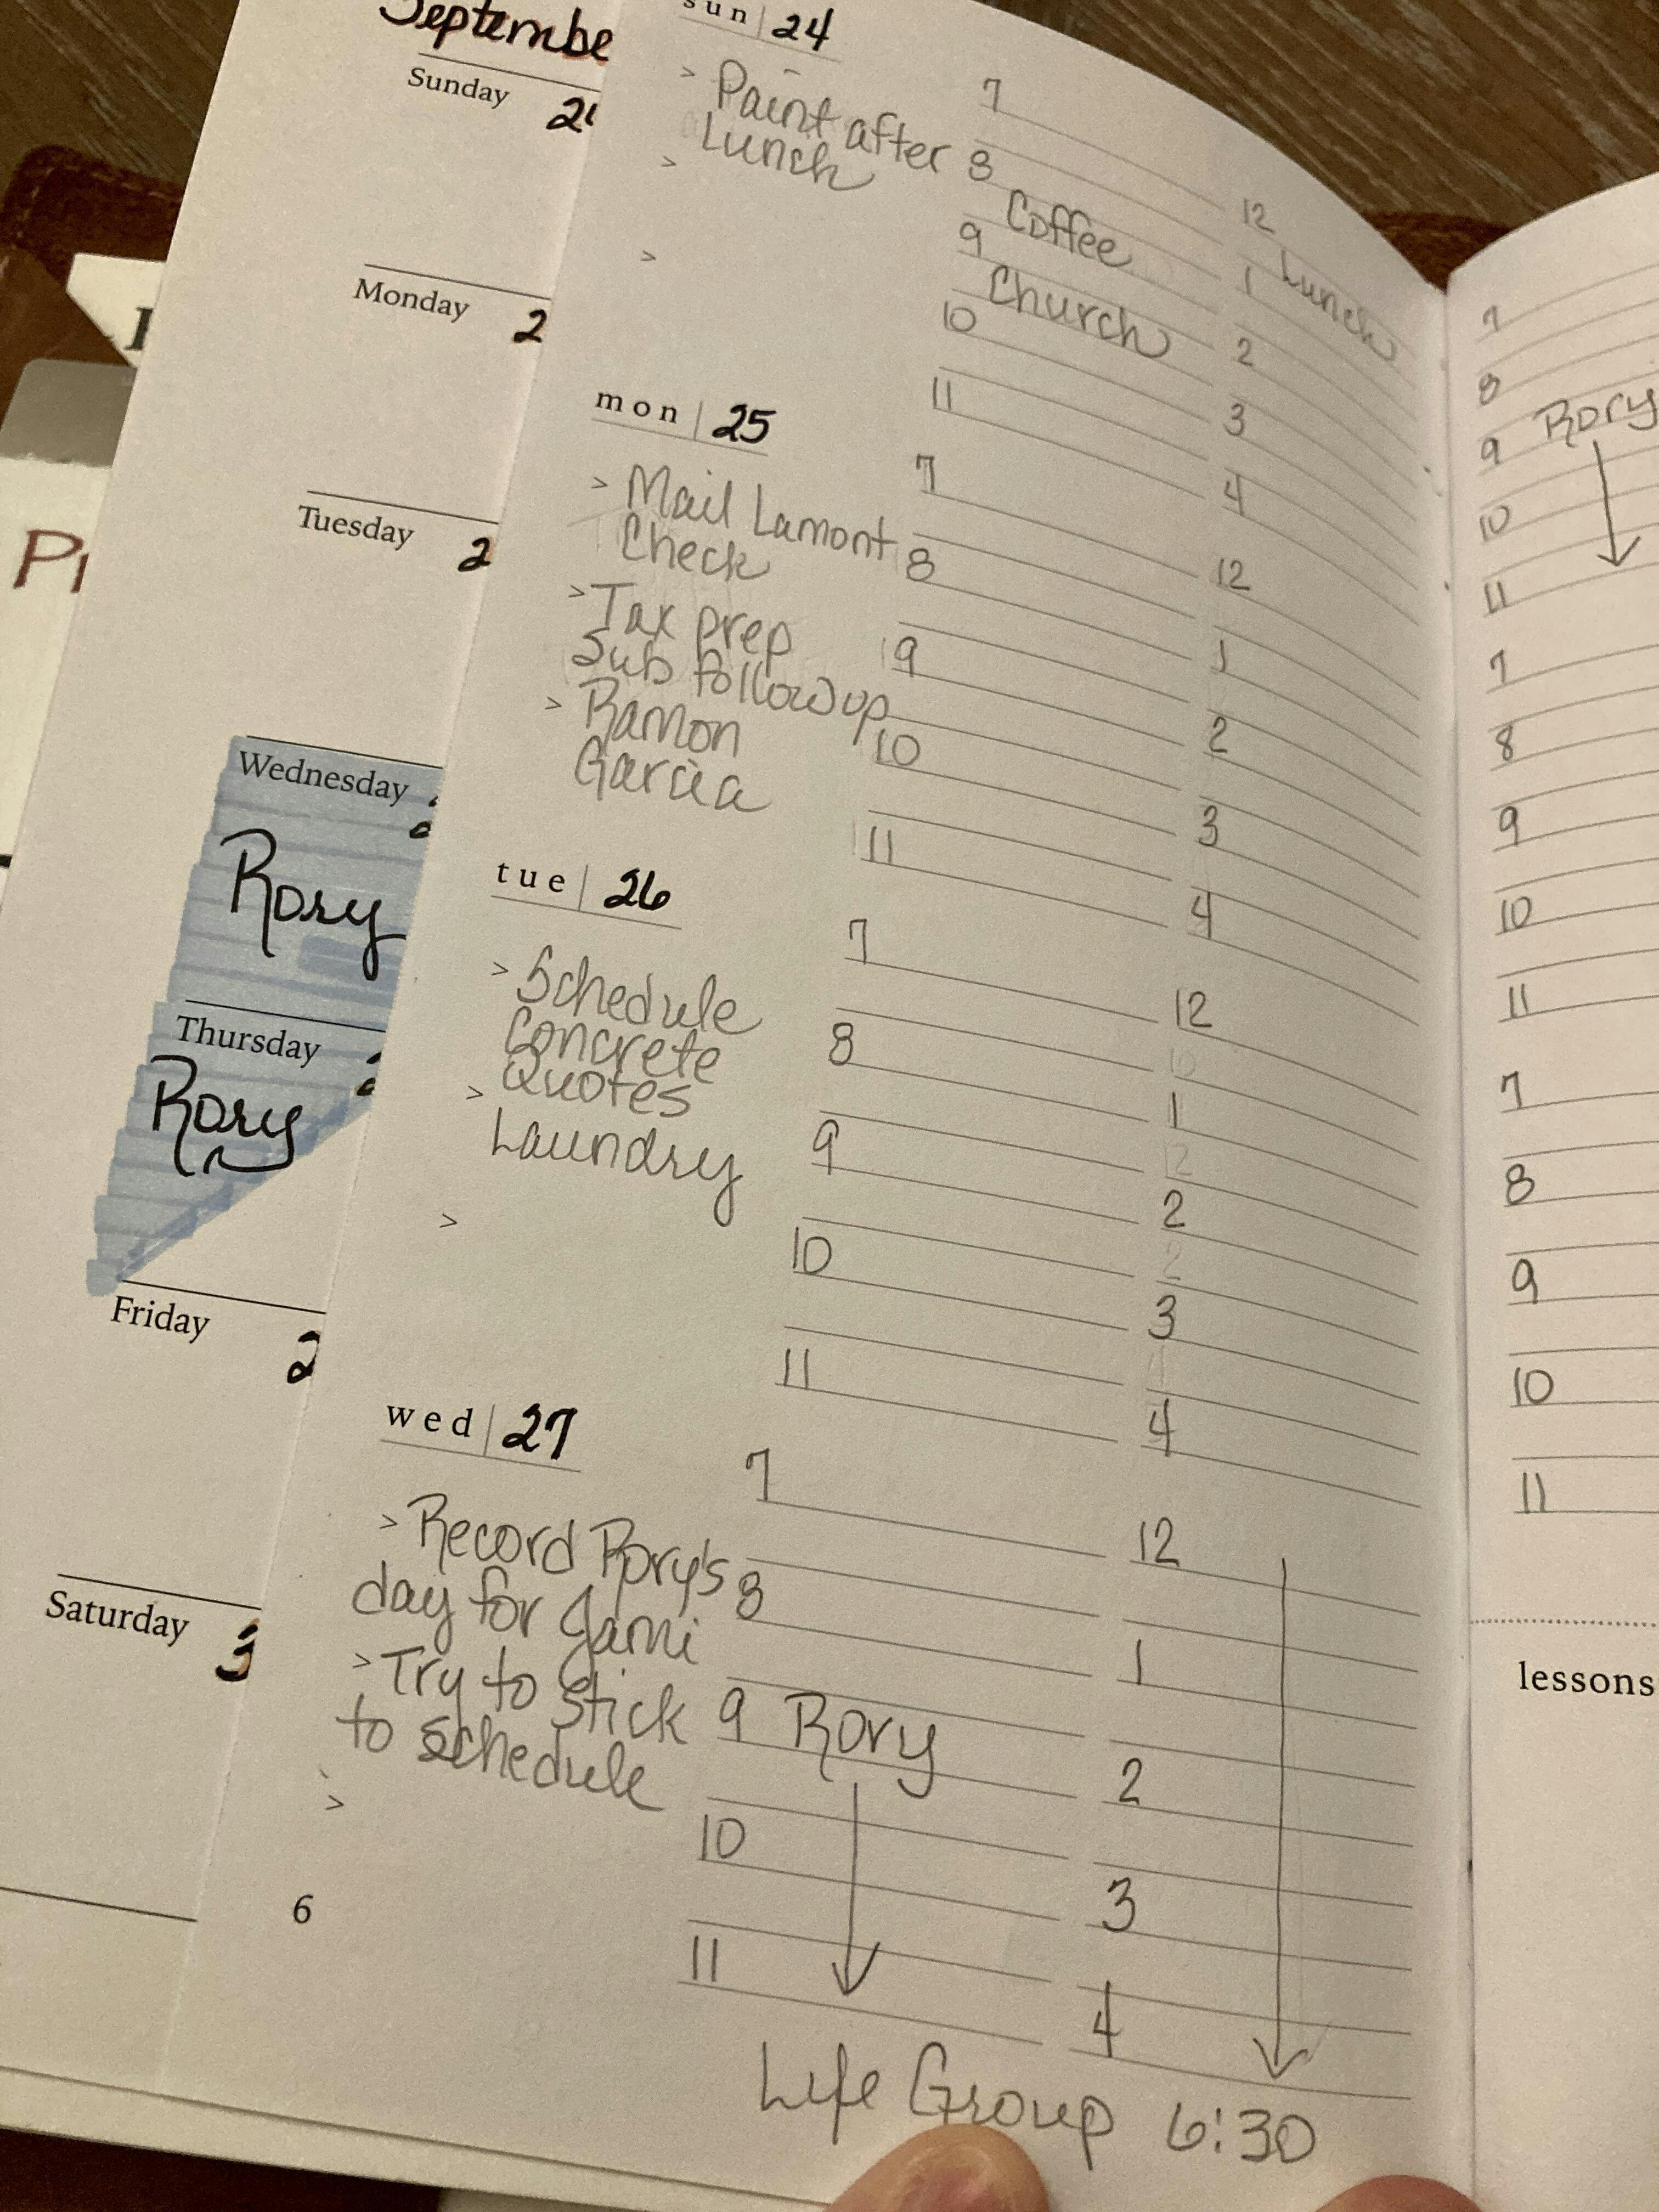 September
Sunday
Monday 2
Tuesday 2
Wednesday
Rory
Thursday
Rory
Friday 2
Saturday 3
sun | 24
> Paint after
Lunch
>
>
7
8
Coffee
9
Church
10
11
12
1 Lunch
2
3
4
mon | 25
> Mail Lamont
Check
> Tax prep
Sub followup
> Ramon
Garcia
7
8
9
10
11
12
1
2
3
4
tue | 26
> Schedule
Concrete
Quotes
> Laundry
>
7
8
9
10
11
12
1
2
3
4
wed | 27
> Record Rory's
day for Jami
> Try to stick
to schedule
>
7
8
9 Rory
10
11
12
1
2
3
4
Life Group 6:30
6
7
8
9 Rory
10
11
7
8
9
10
11
7
8
9
10
11
lessons